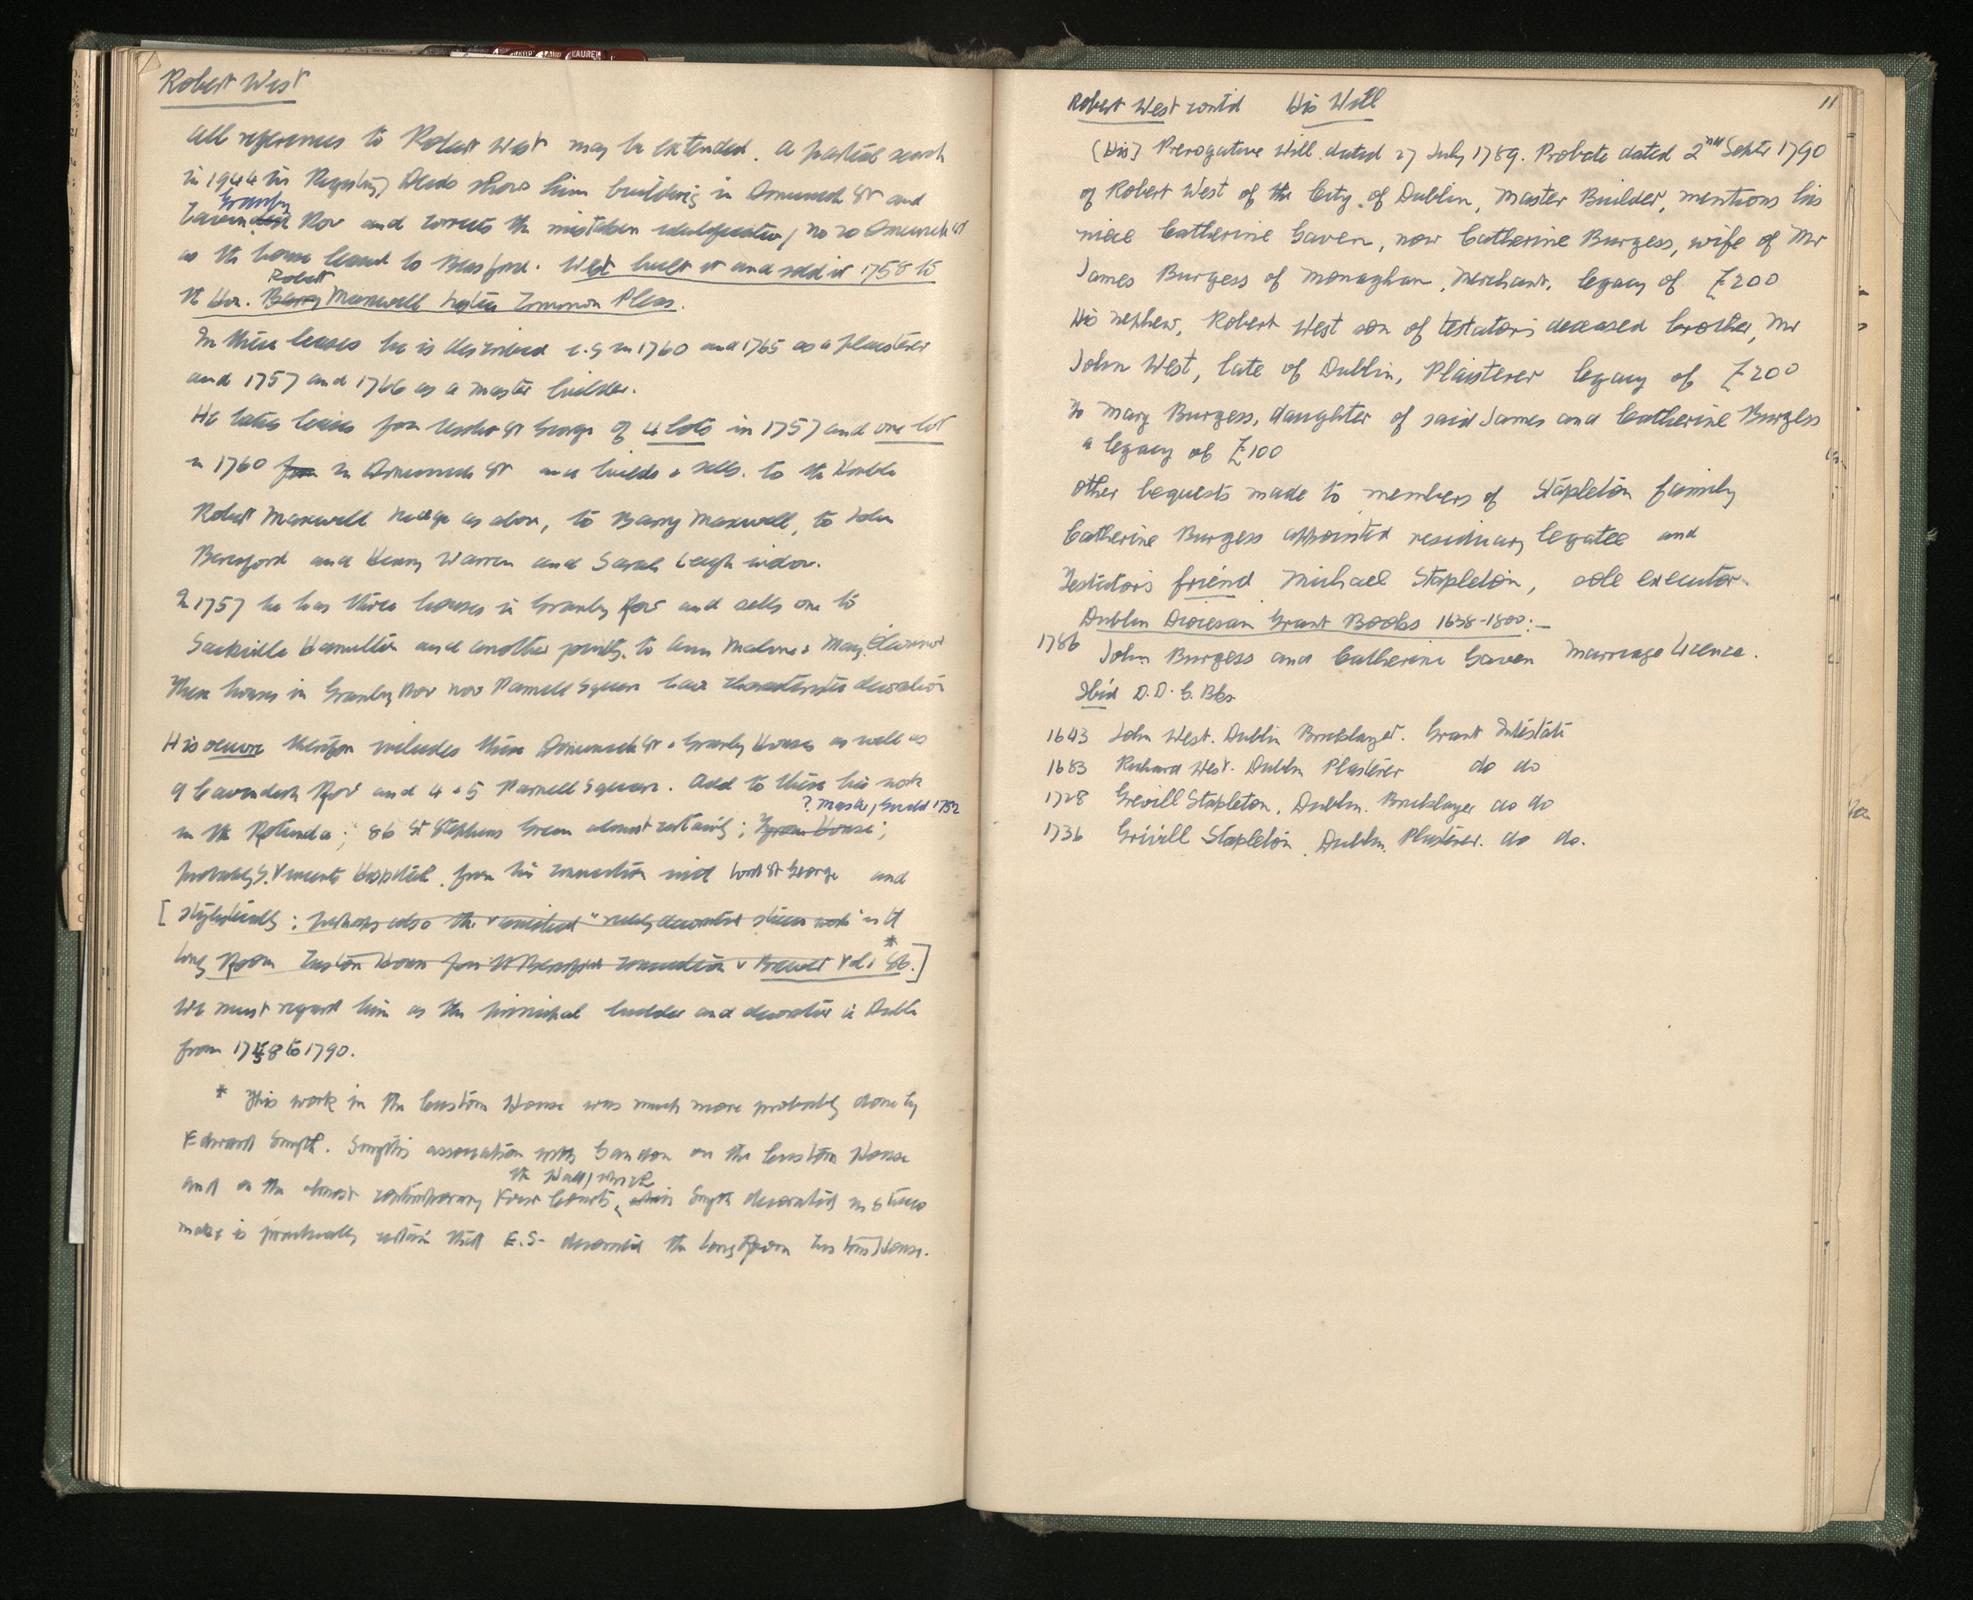 Robert West
All references to Robert West may be extended. A partial search
in 1944 in Registry Deeds shows him building in Dominick St and
Granby
Cavendish Row and corrects the mistaken identification / No 20 Dominick St
as the house leased to Beresford. West built it and sold it 1758 to
Robert
the Hon. Barry Maxwell Common Pleas.
In these leases he is described e.g in 1760 and 1765 as a plaisterer
and 1757 and 1766 as a master builder.
He takes leases from Usshe St George of 4 lots in 1757 and one lot
in 1760 from in Dominick St and builds & sells. to the Honble
Robert Maxwell as above, to Barry Maxwell, to John
Beresford and Henry Warren and Sarah Leigh widow.
In 1757 he has three houses in Granby Row and sells one to
Sackville Hamilton and another jointly to Ann Malone & Mary Eleanor
These houses in Granby Row now Parnell Square have characteristic decoration
His oeuvre therefore includes these Dominick St & Granby Houses as well as
9 Cavendish Row and 4 & 5 Parnell Square. Add to these his work
? 1752
in the Rotunda; 86 St Stephens Green almost certainly; Tyrone House;
probably S. Vincents Hospital from his connection with Lord St George and
[ stylistically; perhaps also the richly decorated stucco work in the
*
Long Room Custom House for the Beresford connection v Brewer Vol i 86.]
We must regard him as the principal builder and decorator in Dublin
from 1758 to 1790.
* This work in the Custom House was much more probably done by
Edward Smyth. Smyth's association with Gandon on the Custom House
the Hall / which
and on the almost contemporary Four Courts, which Smyth decorated in stucco
make is practically certain that E.S. decorated the Long Room Custom House.
11
Robert West contd His Will
[His] Prerogative Will dated 27 July 1789. Probate dated 2nd Septr 1790
of Robert West of the City of Dublin, Master Builder, mentions his
niece Catherine Gaven, now Catherine Burgess, wife of Mr
James Burgess of Monaghan, Merchant, legacy of £200
His nephew, Robert West son of testators deceased brother, Mr
John West, late of Dublin, Plaisterer legacy of £200
To Mary Burgess, daughter of said James and Catherine Burgess
a legacy of £100
other bequests made to members of Stapleton family
Catherine Burgess appointed residuary legatee and
Testators friend Michael Stapleton, sole executor.
Dublin Diocesan Grant Books 1638-1800:-
1786 John Burgess and Catherine Gaven Marriage Licence.
Ibid D.D.G. Bks
1643 John West. Dublin Bricklayer. Grant Intestate
1683 Richard West. Dublin Plasterer do do
1728 Grevill Stapleton, Dublin. Bricklayer do do
1736 Grivill Stapleton, Dublin. Plasterer. do do.